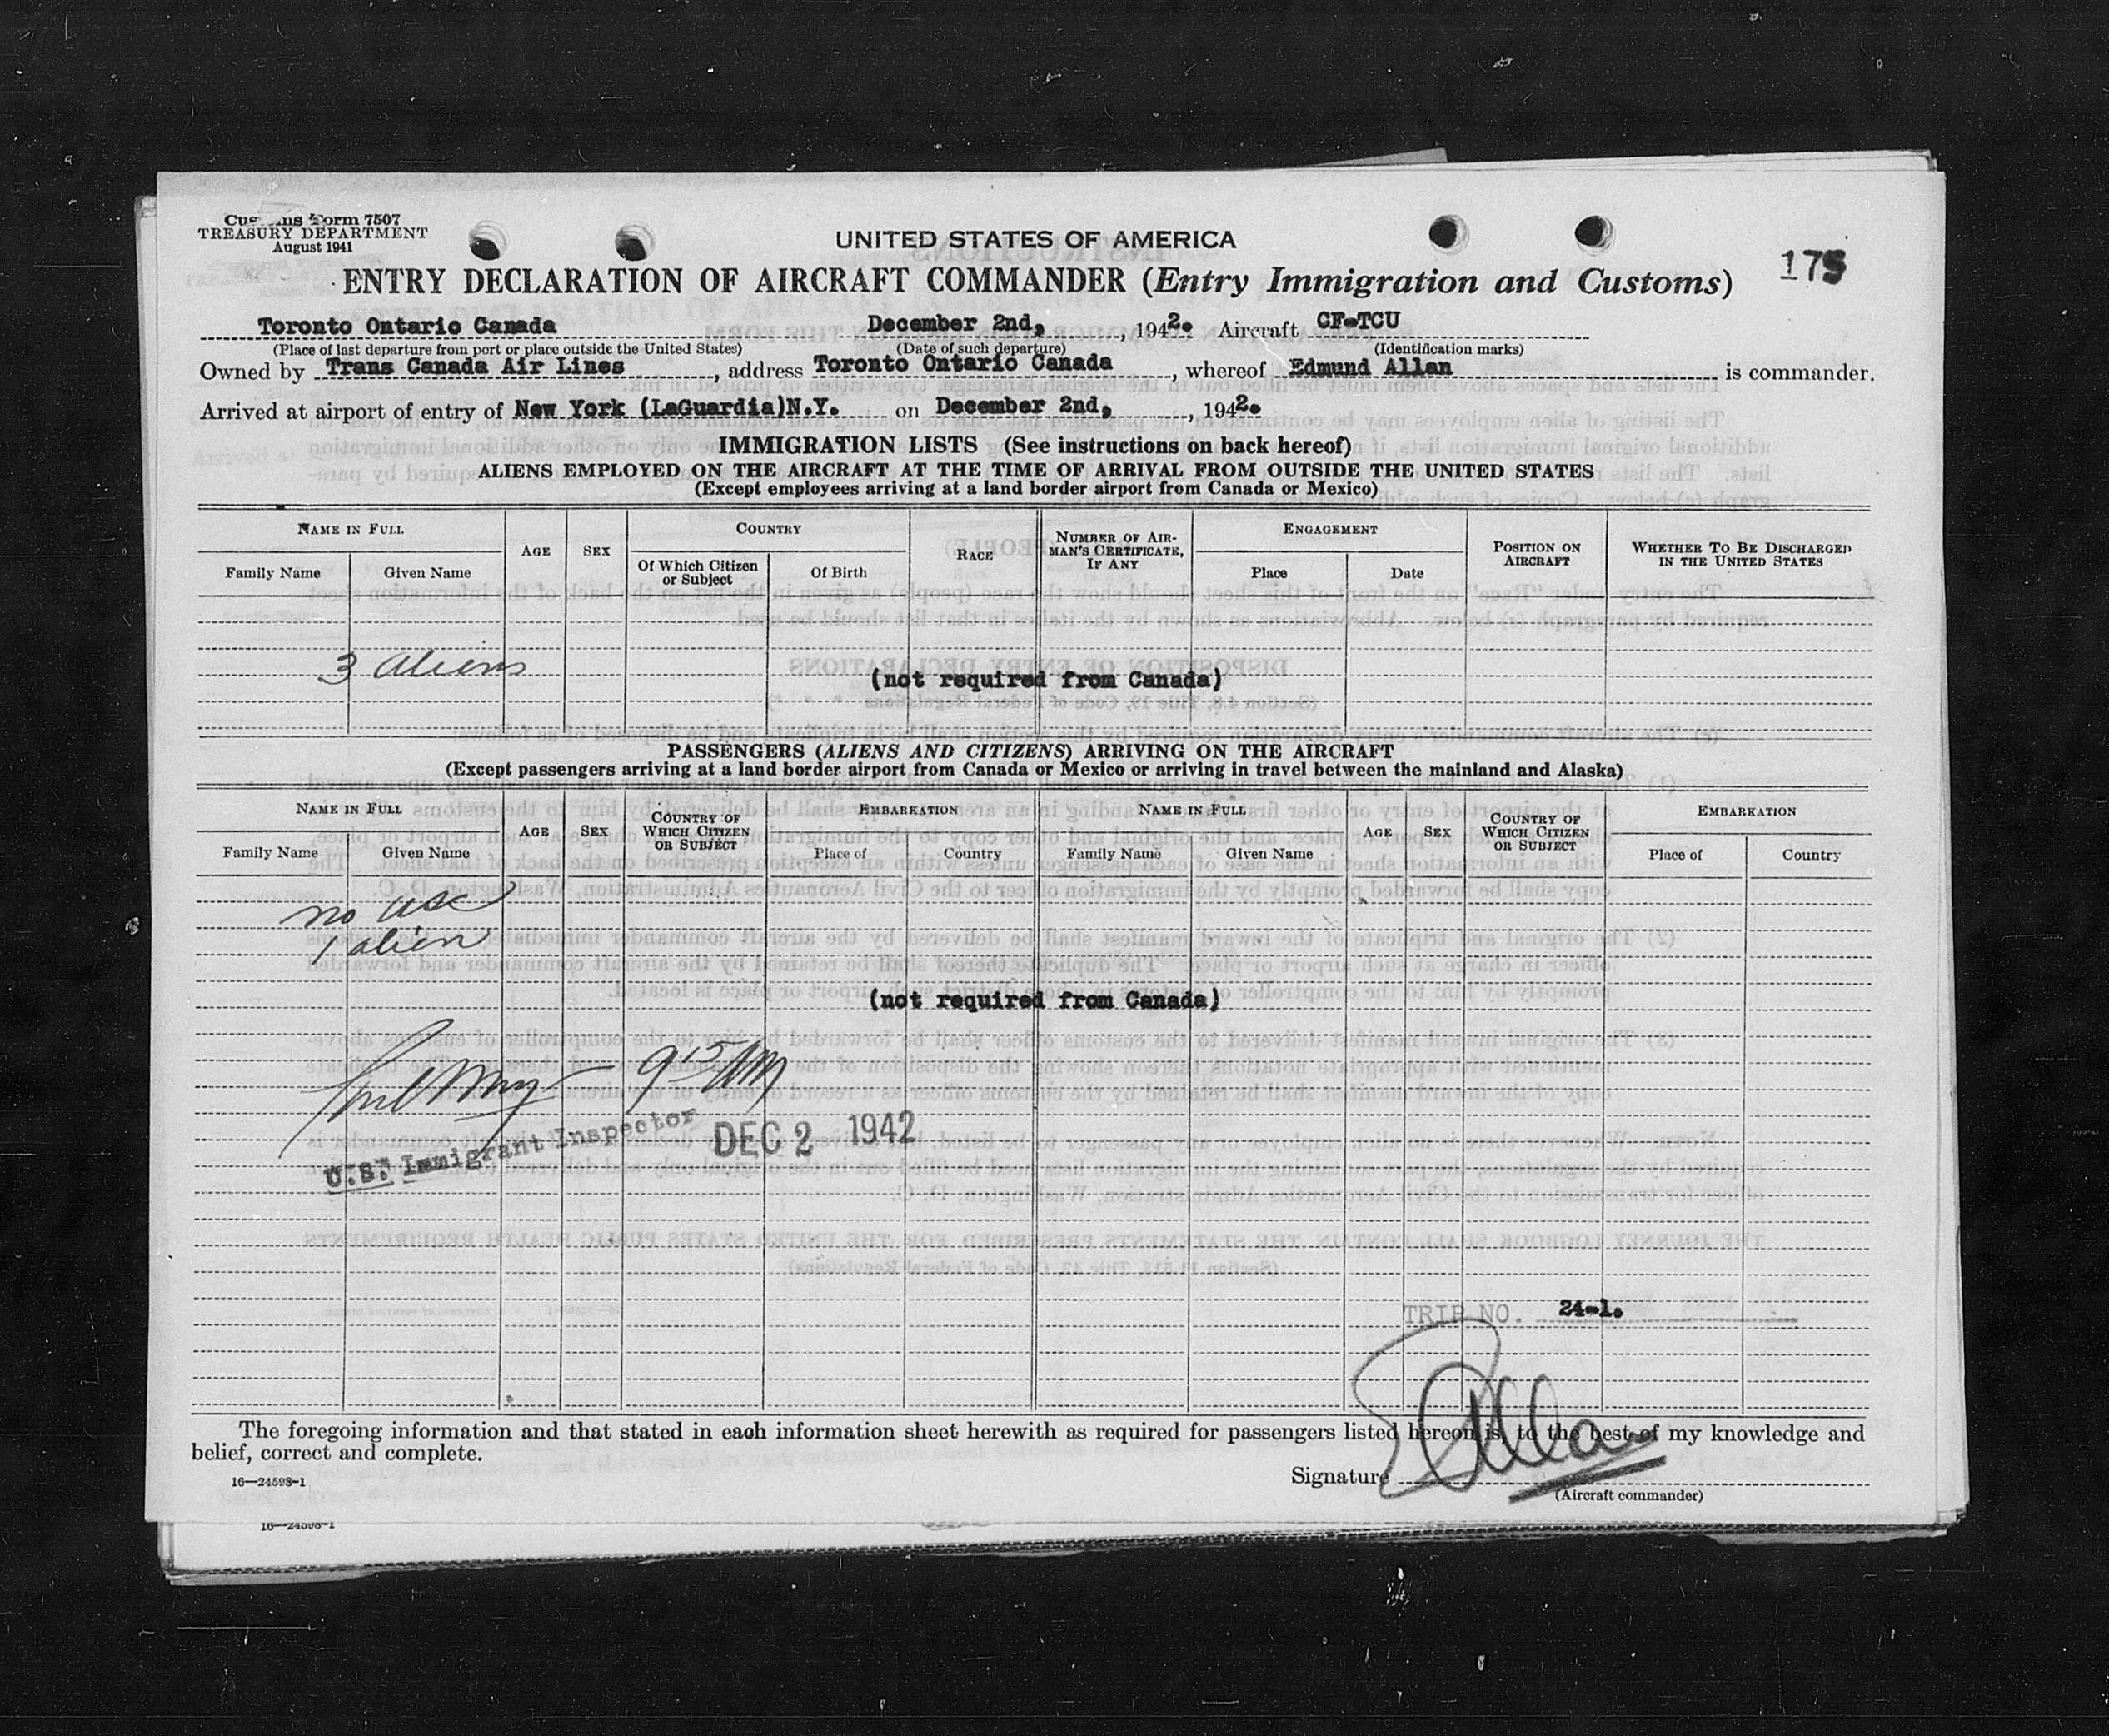 Customs Form 7507
TREASURY DEPARTMENT
August 1941
UNITED STATES OF AMERICA
175
ENTRY DECLARATION OF AIRCRAFT COMMANDER (Entry Immigration and Customs)
Toronto Ontario Canada December 2nd, , 1942. Aircraft CF-TCU
(Place of last departure from port or place outside the United States) (Date of such departure) (Identification marks)
Owned by Trans Canada Air Lines, address Toronto Ontario Canada, whereof Edmund Allan is commander.
Arrived at airport of entry of New York (LaGuardia)N.Y. on December 2nd, , 1942.
IMMIGRATION LISTS (See instructions on back hereof)
ALIENS EMPLOYED ON THE AIRCRAFT AT THE TIME OF ARRIVAL FROM OUTSIDE THE UNITED STATES
(Except employees arriving at a land border airport from Canada or Mexico)
NAME IN FULL AGE SEX COUNTRY RACE NUMBER OF AIRMAN'S CERTIFICATE, IF ANY ENGAGEMENT POSITION ON AIRCRAFT WHETHER TO BE DISCHARGED IN THE UNITED STATES
Family Name Given Name Of Which Citizen or Subject Of Birth Place Date
3 aliens
(not required from Canada)
PASSENGERS (ALIENS AND CITIZENS) ARRIVING ON THE AIRCRAFT
(Except passengers arriving at a land border airport from Canada or Mexico or arriving in travel between the mainland and Alaska)
NAME IN FULL AGE SEX COUNTRY OF WHICH CITIZEN OR SUBJECT EMBARKATION NAME IN FULL AGE SEX COUNTRY OF WHICH CITIZEN OR SUBJECT EMBARKATION
Family Name Given Name Place of Country Family Name Given Name Place of Country
no usc
1 alien
(not required from Canada)
9 15 AM
U.S. Immigrant Inspector DEC 2 1942
TRIP NO. 24-1.
The foregoing information and that stated in each information sheet herewith as required for passengers listed hereon is, to the best of my knowledge and
belief, correct and complete.
16—24598-1
Signature E Allan
(Aircraft commander)
16—24598-1